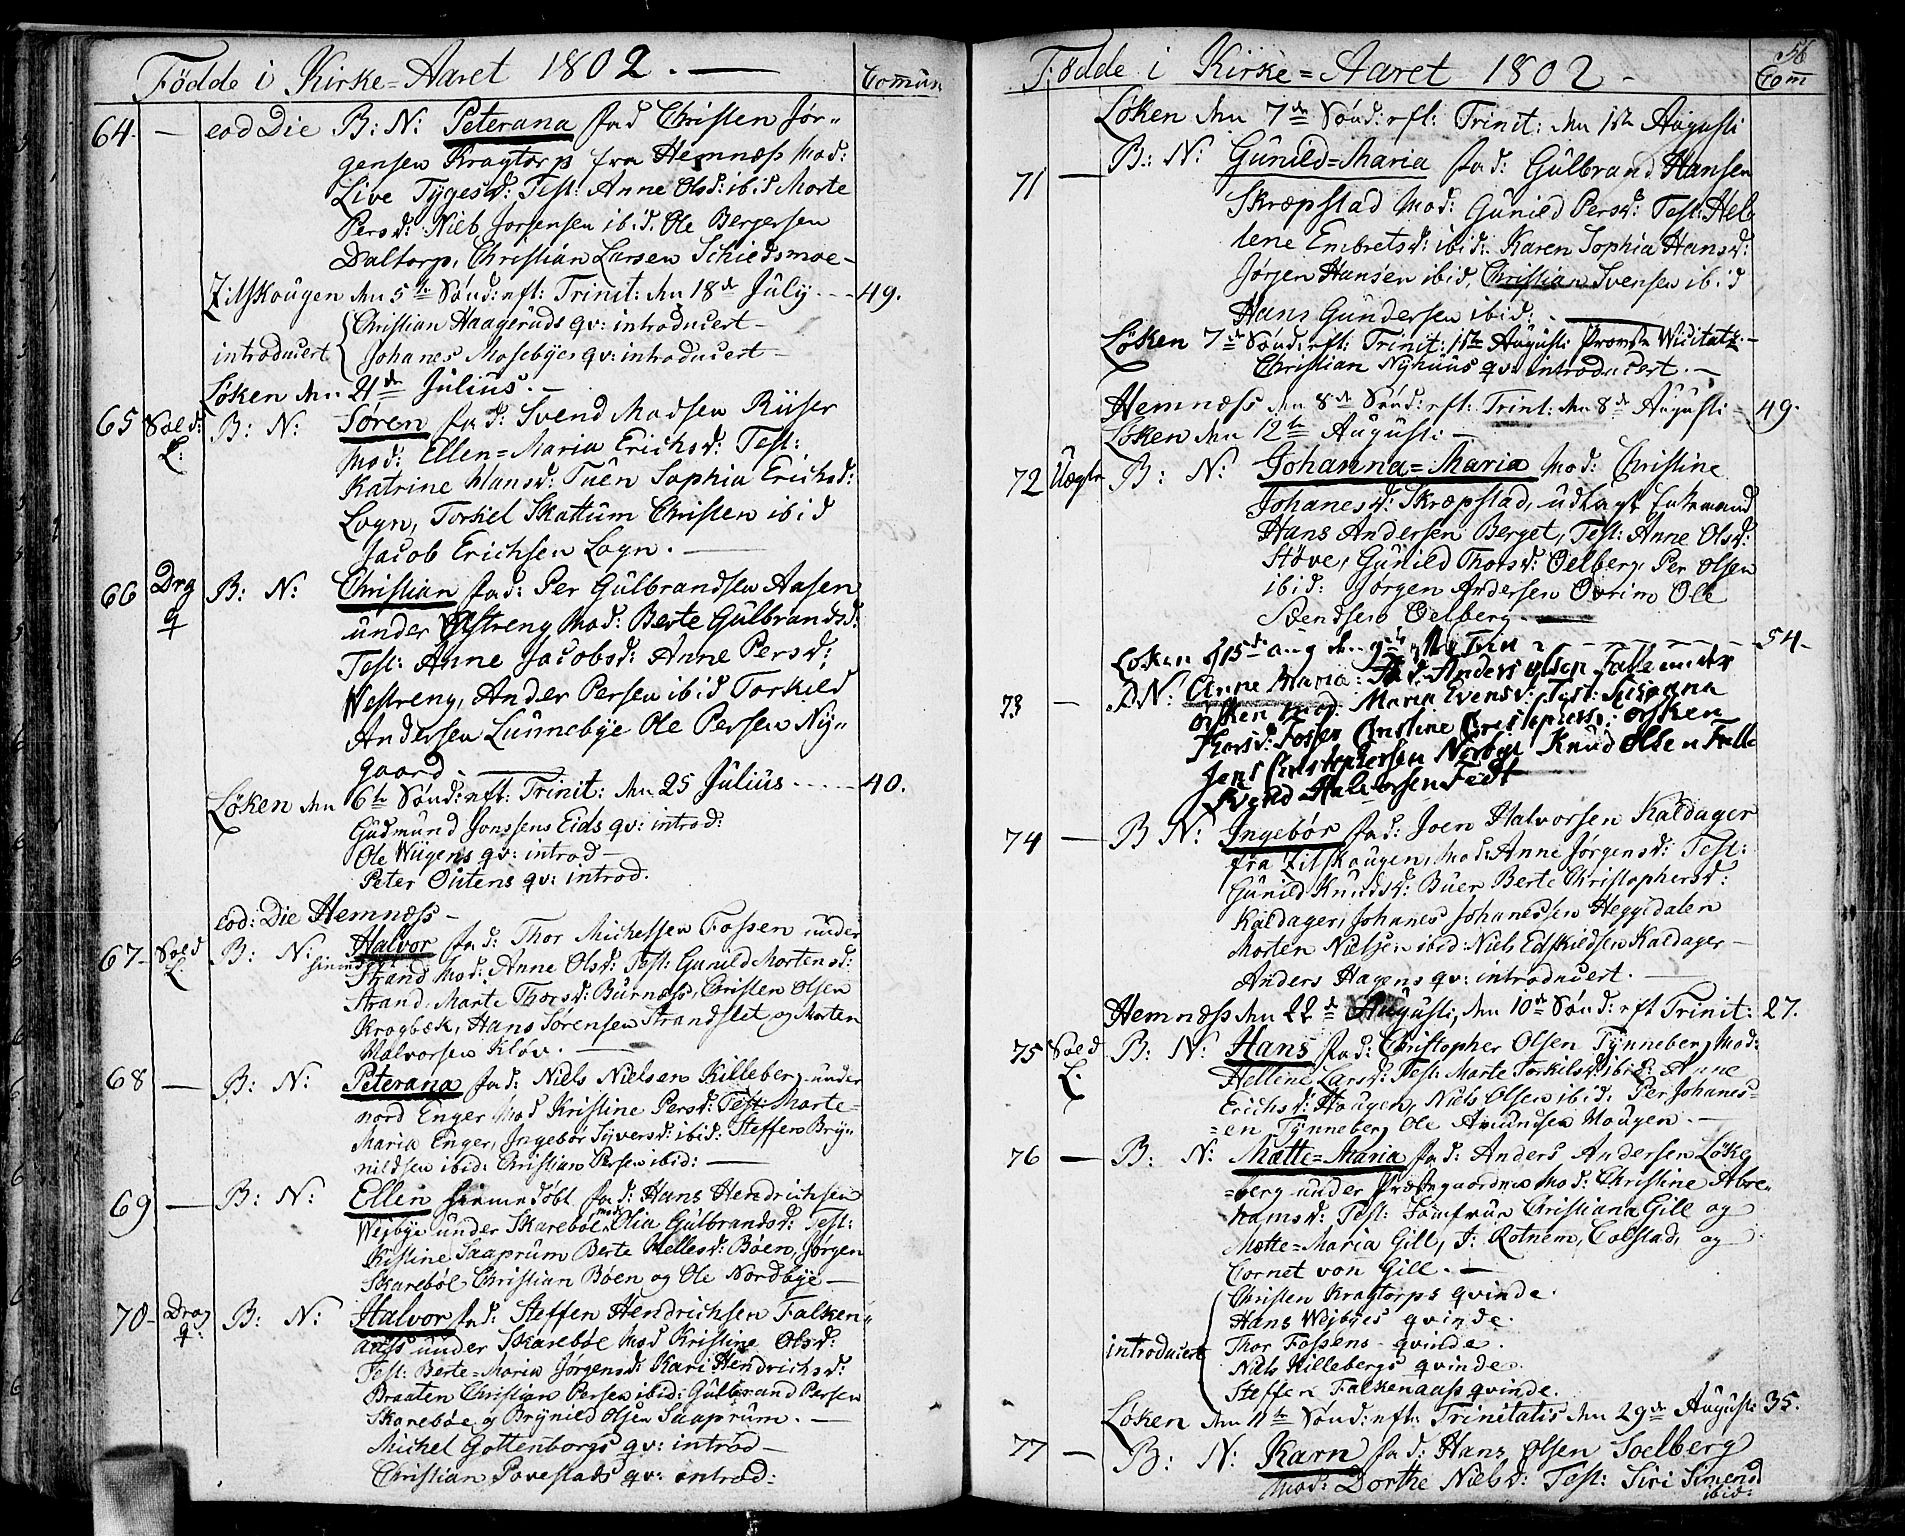 Fødde i Kirke=Aaret 1802. — Comun
64. — eod Die B: N: Peterana fad Christen Jør„
gensen Kragtorp fra Hemnæss Mod:
Live Tygesd: Test: Anne Olsd: ibid Morte
Persd: Nieb Jorsensen ibid. Ole Bergersen
Daltorp, Christian Larsen Schiedsmoe –
Zitskougen den 5te Sønd: eft: Trinit: den 18de July - - - 49.
introducert { Christian Haagerüds qv: introducert –
Johanes Mosebyes qv: introducert –
Løken den 21de Julius. –
65 Sold: L: B: N: Søren fad: Svend Madsen Rüser
Mod: Ellen=Maria Erichsd: Test:
Katrine Hansd: Tuen Sophia Erichsd:
Logn, Torkel Skattum Christen ibid
Jacob Erichsen Logn. —
66 Drg q B: N: Christian fad: Per Gülbrandsen Aasen
under Østreng Mod: Berte Gülbrandsd:
Test: Anne Jacobsd: Anne Persd:
Westreng, Ander Persen ibid Torkild
Andersen Lunnebye Ole Persen Ny„
gaard. —
Løken den 6te Sønd: eft: Trinit: den 25 Julius - - - - 40.
Güdmund Jonssens Eids qv: introd:
Ole Wügens qv: introd –
Peter Oütens qv: introd.
eod: Die Hemnæss –
67. Sold L: B: N: Halvor fad: Thor Michelsen Fossen under
Strand Mod: Anne Olsd: Test: Gunild Mortensd:
Strand, Marte Thorsd: Burnæss, Christen Olsen
Krogbæk, Hans Sørensen Strandslet og Morten
Halvorsen Kløv. —
68 — B: N: Peterana fad: Niels Nielsen Killeberg under
nord Enger Mod Kristine Persd: Test: Marte=
Maria Enger, Ingebor Syversd: ibid: Steffen Bry„
nildsen ibid: Christian Persen ibid: —
69 — B: N: Ellen hiemedøbt fad: Hans Hendrichsen
Wejbye under Skarebøl mod Olia Gülbrandsd: Test:
Kistine Saaprum Berte Hellesd: Bøen, Jørgen
Skarebøl Christian Bøen og Ole Nordbye –
70 - Drag q: B: N: Halvor fad: Steffen Hendrichsen Falken„
aass under Skarebøe Mod Kristine Olsd:
Test: Berte=Maria Jorgensd: Kari Hendrichsd:
Braaten Christian Persen ibid: Gülbrand Persen
Skarebøe og Brynild Olsen Saaprum. —
Michel Gottenborgs qv: introd –
Christian Povestads qv: introd:
56
Fødde i Kirke=Aaret 1802 - Com
Løken den 7de Sønd: eft: Trinit: den 1ste Augusti
71 — B: N: Gunild=Maria fad: Gülbrand Hansen
Skræpstad Mod: Gunild Persd: Test: Hel„
lene Embretsd: ibid: Karen Sophia Hansd:
Jørgen Hansen ibid, Christian Svensen ibid
Hans Gundersen ibid: —
Løken 7de Sønd: eft: Trinit: 1ste Augusti Provste Wisitatz. –
Christian Nyhuus qv: introducert. –
Hemnæss den 8de Sønd: eft: Trint: den 8de Augusti = 49.
Løken den 12te Augusti –
72 Uægte B: N: Johanna=Maria Mod: Christine
Johanesd: Skræpstad, udlagt Enkemand
Hans Andersen Berget, Test: Anne Olsd:
Støve, Gunild Thorsd: Oelberg, Per Olsen
ibid: Jørgen Andersen Ovrim Ole
Svendsen Oelberg. —
Loken d 15de aug den 9de eft Trin - - - - - 54.
73 — B N: Anne Maria: Fad: Anders olsen Falle under
Ofsken mod: Maria Evensd: Test: Susanna
Thorsd: Fossen Christine Christophersd: Ofsken
Jens Christophersen Norbye Knud Olsen Falle
Svend Halvorsen Fedt
74 — B N: Ingebor fad: Joen Halvorsen Kaldager
fra Zitskougen, Mod: Anne Jørgensd: Test:
Gunild Knudsd: Buer Berte Christophersd:
Kaldager, Johanes Johanessen Heggedalen
Morten Nielsen ibid: Niels Edskildsen Kaldager –
Anders Hagens qv: introducert. —
Hemnæss den 22de Augusti, den 10de Sønd: eft Trinit: 27.
75 Sold L: B: N: Hans fad: Christopher Olsen Tynneberg Mod:
Hellene Larsd: Test: Marte Torkilsd: ibid: Anne
Erichsd: Hougen, Niels Olsen ibid: Per Johanes=
=en Tynneberg Ole Amundsen Hougen. —
76 — B: N: Mætte=Maria fad: Anders Andersen Løke
=berg under Præstgaarden Mod: Christine Abra„
hamsd: Test: Jomfrue Christiana Gill og
Mætte=Maria Gill, J: Rotnem, Colstad, og
Cornet von Gill. —
introducert { Christen Kragtorps qvinde.
Hans Wejbyes qvinde.
Thor Fossens qvinde.
Niels Killebergs qvinde.
Steffen Falkenaass qvinde.
Løken den 11te Sønd: eft: Trinitatis den 29de Augusti 35.
77 — B: N: Karn fad: Hans Olsen Soelberg
Mod: Dorthe Nielsd: Test: Siri Simensd
ibid: